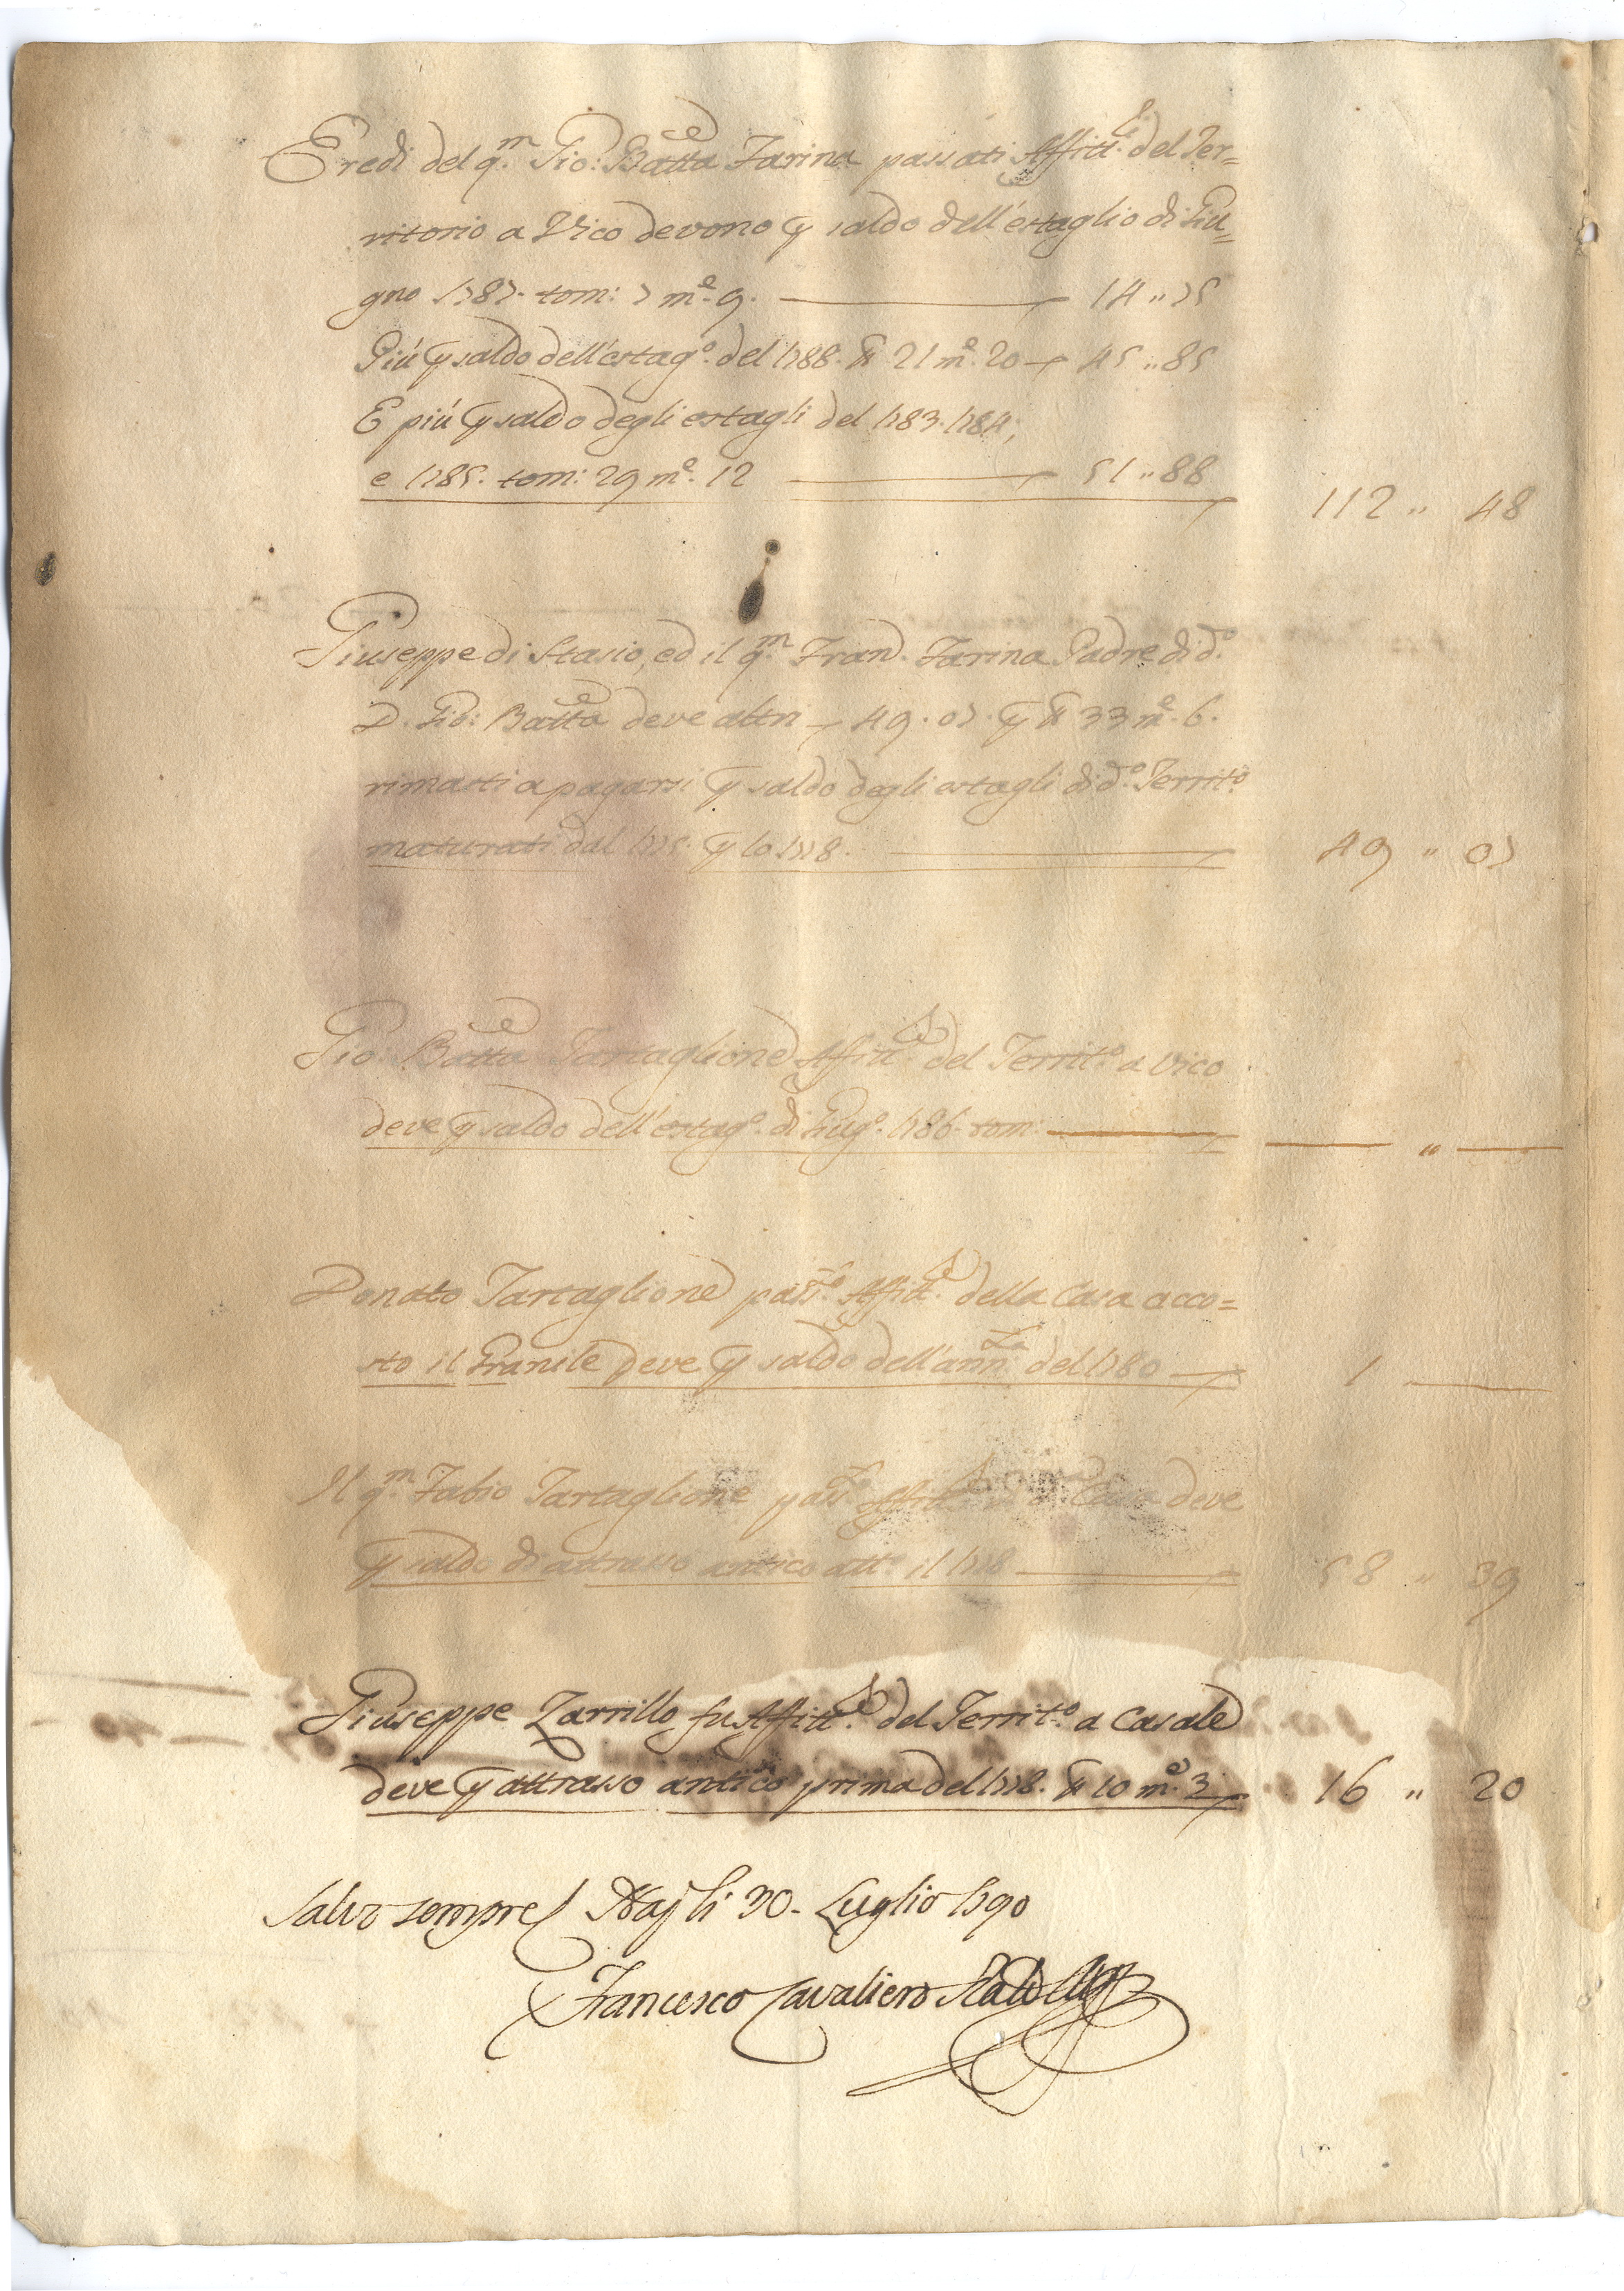 Eredi del q.m Gio: Batta Farina passati Affitt.i del Ter=
ritorio a Vico devono p saldo dell'estaglio di Giu=
gno 1787. tom: 7 m.e 9. — 14 „ 75
Più p saldo dell'estag.o del 1788. tt 21 m.e 20 — 45 „ 85
E più p saldo degli estagli del 1783. 1784;
e 1785. tom: 29 m.e 12 — 51 „ 88
112 „ 48
Giuseppe di Stasio, ed il q.m Fran. Farina Padre di d.o
D. Gio: Batta deve altri — 49. 07. p tt 33 m.e 6.
rimasti a pagarsi p saldo degli estagli di d.o Territ.o
maturati dal 1775. p lo 1778. — 49 „ 07
Gio: Batta Tartaglione Affitt.e del Territ.o a Vico
deve p saldo dell'estag.o di Giug.o 1786. tom: — — „ —
Donato Tartaglione pass.o Affitt.e della Casa acco=
sto il Granile deve p saldo dell'ann.ta del 1780 — 1 —
Il q.m Fabio Tartaglione pass.o Affitt.e di d.a Casa deve
p saldo di attrasso antico att.o il 1778 — 58 „ 39
Giuseppe Zarrillo fu Affitt.e del Territ.o a Casale
deve p attrasso antico prima del 1778. tt 10 m.e 3 — 16 „ 20
Salvo sempre Napli 30. Luglio 1790
Francesco Cavaliero